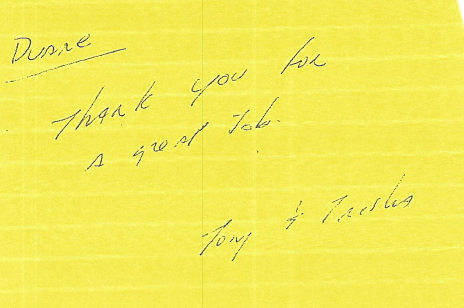 Duane
Thank you for
a great Job.
Tony & Trisha